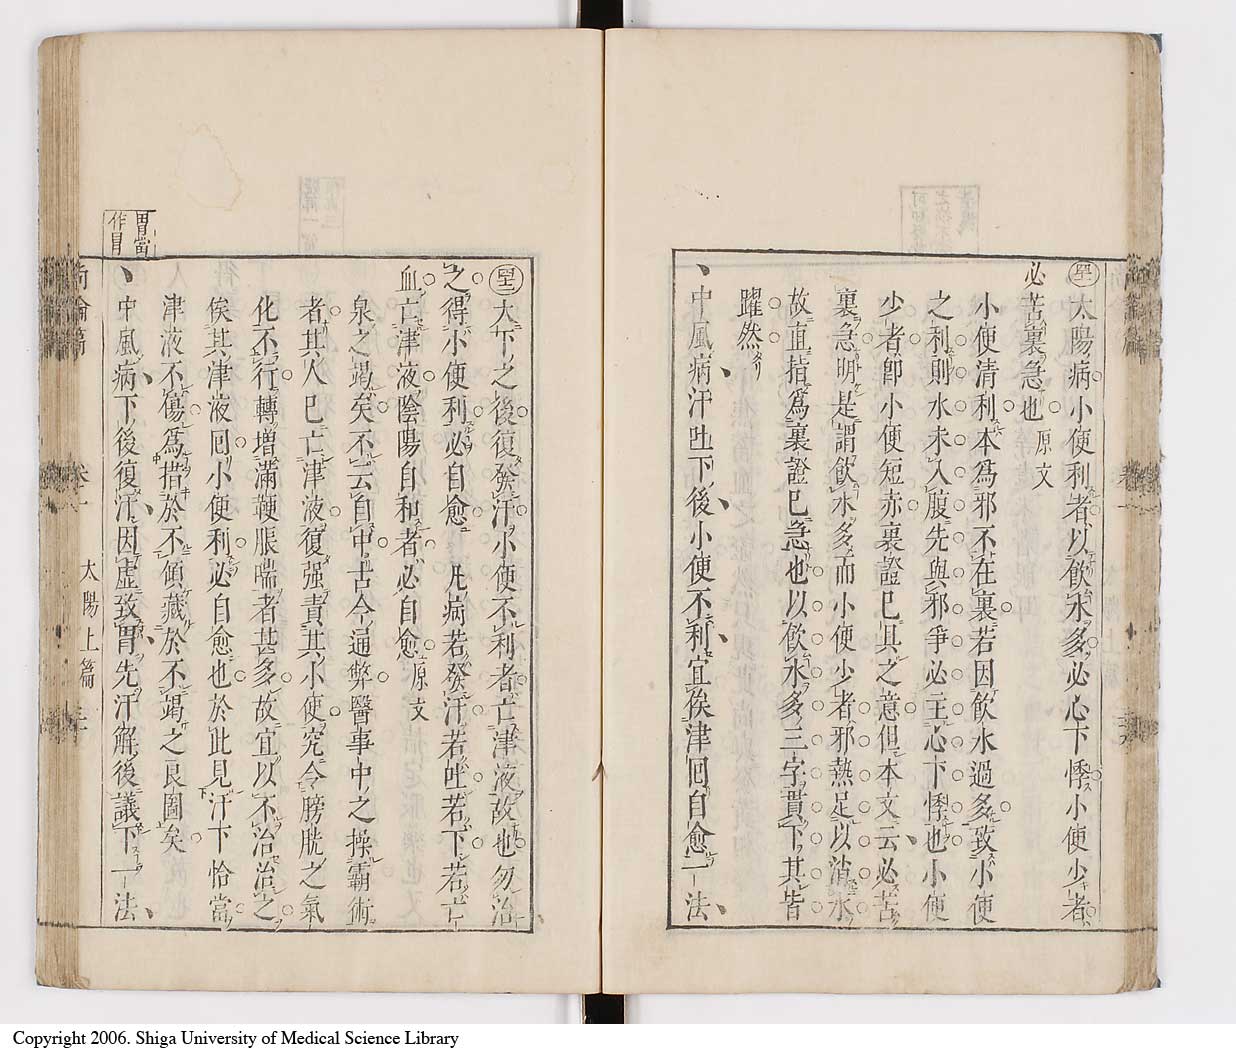 太陽病小便利者以飲水多必心下悸小便少者
必苦裏急也原文
小便清利本為邪不在裏若因飲水過多致小便
之利則水未入腹先與邪爭必主心下悸也小便
少者即小便短赤裏證已具之意但本文云必苦
裏急明是謂飲水多而小便少者邪熱足以消水
故直指為裏證已急也以飲水多三字貫下其皆
躍然
中風病汗吐下後小便不利宜俟津回自愈一法
大下之後復發汗小便不利者亡津液故也勿治
之得小便利必自愈 凡病若發汗若吐若下若亡
血亡津液陰陽自和者必自愈原文
泉之竭矣不云自中古今通弊醫事中之操霸術
者其人已亡津液復强責其小便究令膀胱之氣
化不行轉增滿鞕脹喘者甚多故宜以不治治之
俟其津液回小便利必自愈也於此見汗下恰當
津液不傷為措於不傾藏於不竭之良圖矣
中風病下後復汗因虛致胃先汗解後議下一法
胃當
作冐
尚論篇 卷一 太陽上篇
Copyright 2006. Shiga University of Medical Science Library